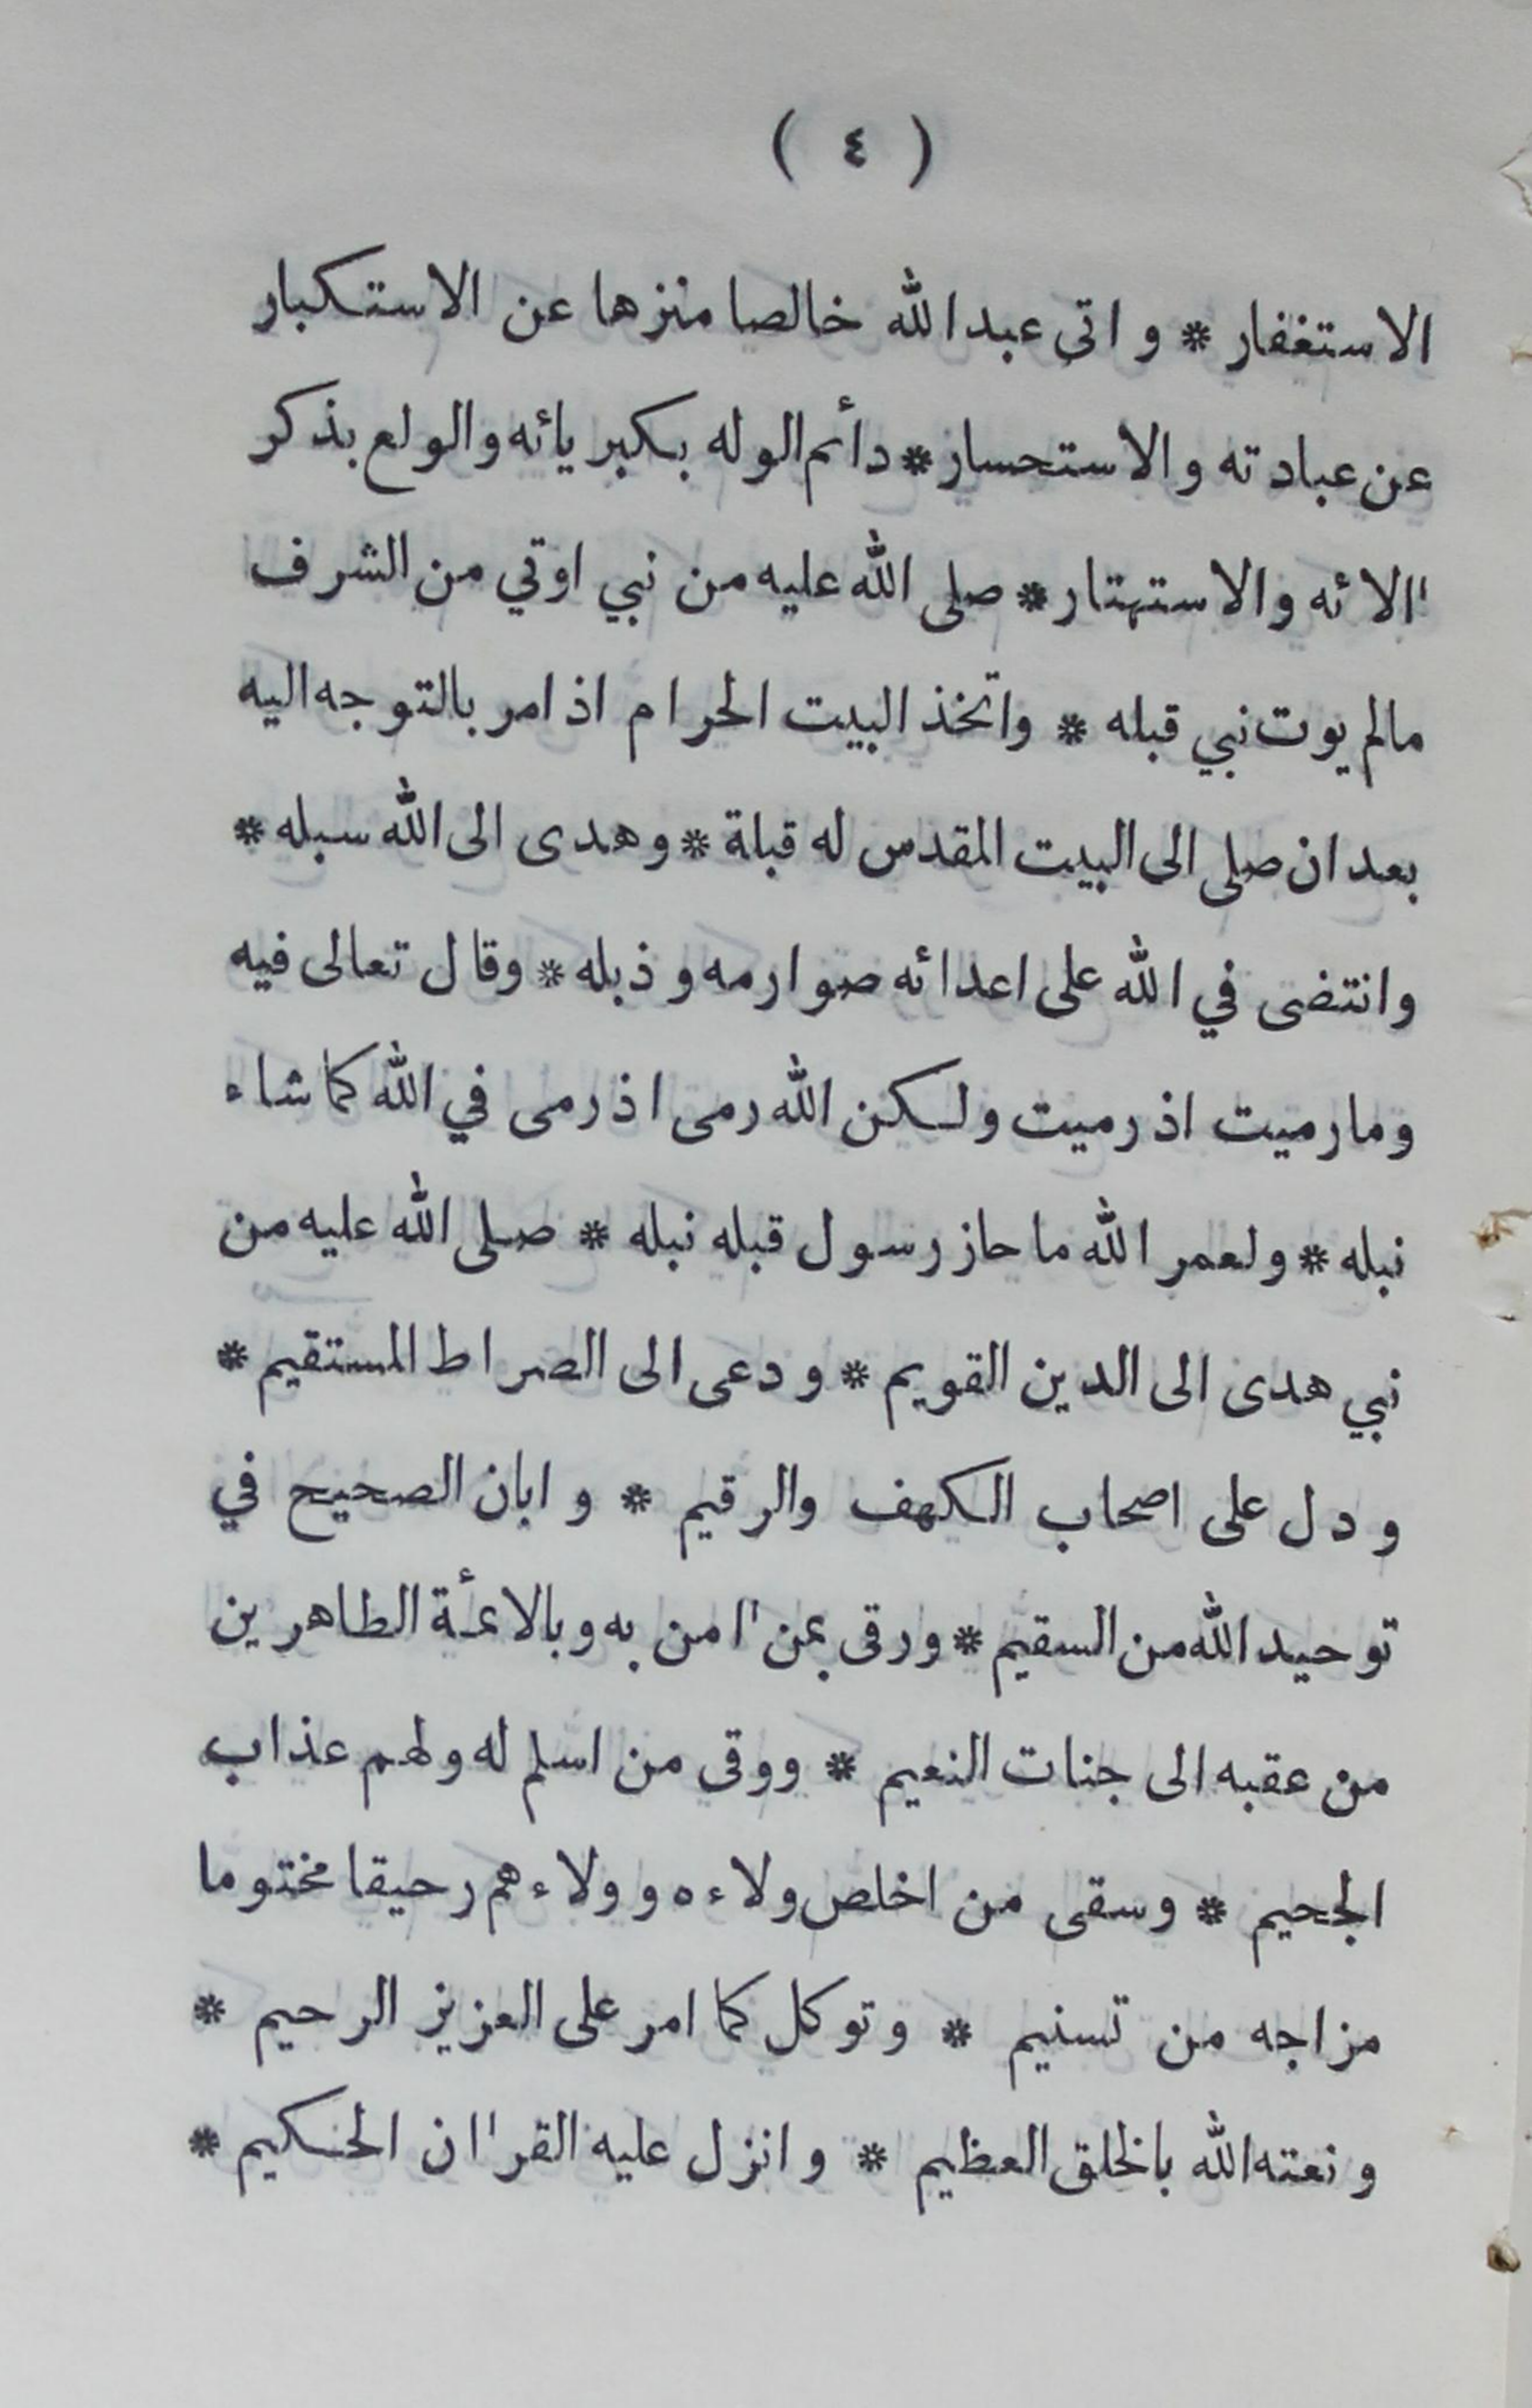 ( ٤ )
الاستغفار * واتى عبد الله خالصا منزها عن الاستكبار
عن عبادته والاستحسار * دأىم الوله بكبريائه والولع بذكر
االائه والاستهتار * صلى الله عليه من نبي اوتي من الشرف
مالم يوت نبي قبله * واتخذ البيت الحرام اذ امر بالتوجه اليه
بعد ان صلى الى البيت المقدس له قبلة * وهدى الى الله سبله *
وانتضى في الله على اعدائه صوارمه وذبله * وقال تعالى فيه
وما رميت اذ رميت ولكن الله رمى اذ رمى في الله كما شاء
نبله * ولعمر الله ما حاز رسول قبله نبله * صلى الله عليه من
نبي هدى الى الدين القويم * ودعى الى الصراط المستقيم *
ودل على اصحاب الكهف والرقيم * وابان الصحيح في
توحيد الله من السقيم * ورقى بمن اامن به وبالائمة الطاهرين
من عقبه الى جنات النعيم * ووقى من اسلم له ولهم عذاب
الجحيم * وسقى من اخلص ولاءه وولاءهم رحيقا مختوما
مزاجه من تسنيم * وتوكل كما امر على العزيز الرحيم *
ونعته الله بالخلق العظيم * وانزل عليه القراان الحكيم *